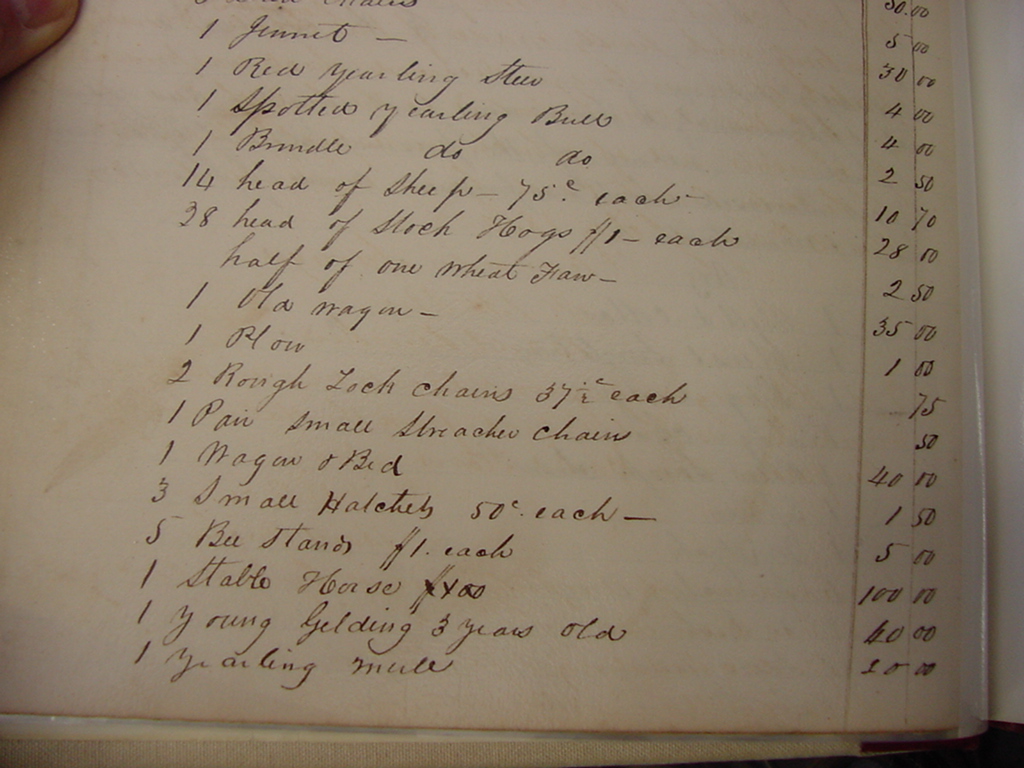 Chains 5 00
1 Jinnet — 30 00
1 Red yearling Steer 4 00
1 Spotted yearling Bull 4 00
1 Brindle do do 2 50
14 head of Sheep — 75c each — 10 50
28 head of Stock Hogs $1 — each 28 00
half of one Wheat Fan — 2 50
1 Old Wagon — 35 00
1 Plow 1 00
2 Rough Lock Chains 37½c each 75
1 Pair Small Stracher Chains 50
1 Wagon & Bed 40 00
3 Small Hatchets 50c. each — 1 50
5 Bee Stands $1. each 5 00
1 Stable Horse $100 100 00
1 Young Gelding 3 years old 40 00
1 Yearling Mule 50 00